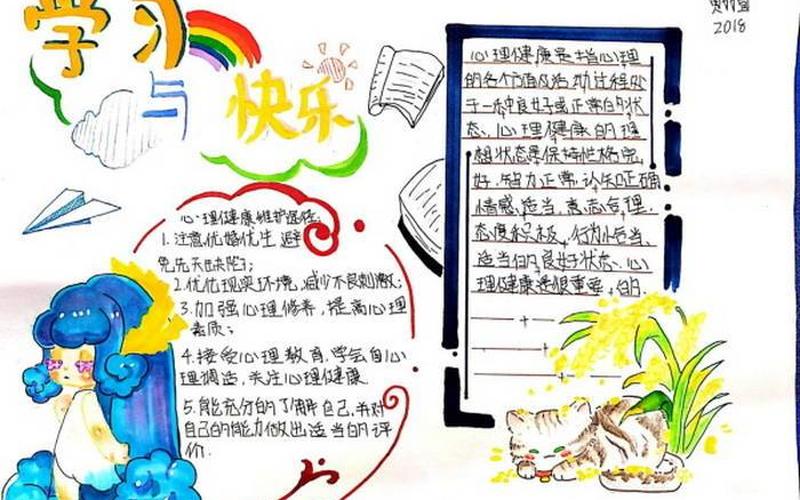 学习
与
快乐
2018
心理健康维护途径:
1.注意优婚优生 避
免先天缺陷;
2.优化现实环境,减少不良刺激;
3.加强心理修养,提高心理
素质;
4.接受心理教育,学会自心
理调适,关注心理健康
5.能充分的了解自己,并对
自己的能力做出适当的评
价.
心理健康是指心理
的各个方面及活动过程处
于一种良好或正常的状
态、心理健康的理
想状态是保持性格完
好、智力正常、认知正确
情感适当、意志合理、
态度积极、行为恰当、
适当的良好状态、心
理健康是很重要的.